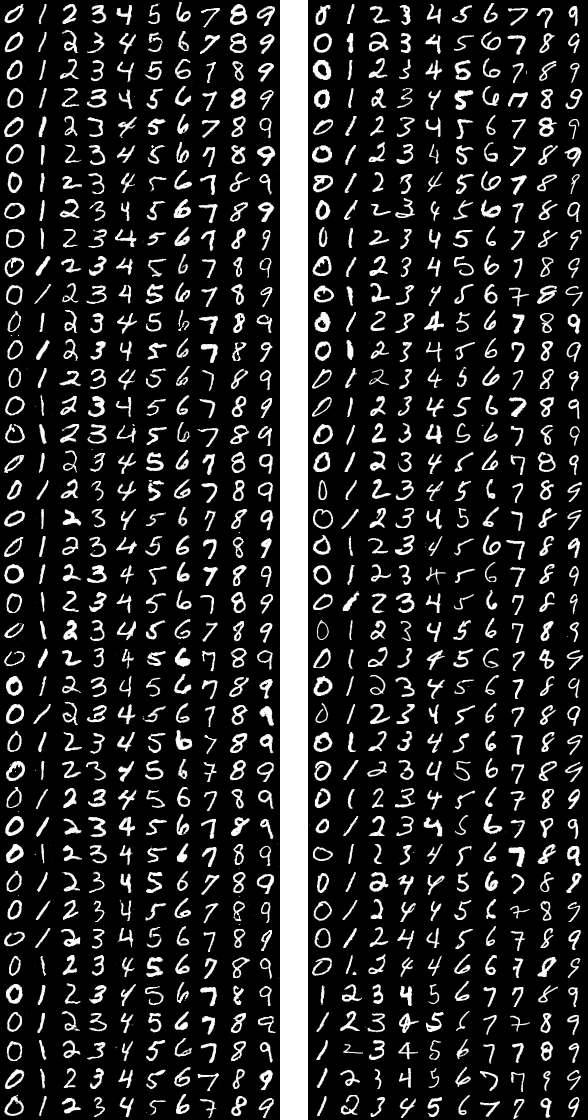 0 1 2 3 4 5 6 7 8 9
0 1 2 3 4 5 6 7 8 9
0 1 2 3 4 5 6 7 8 9
0 1 2 3 4 5 6 7 8 9
0 1 2 3 4 5 6 7 8 9
0 1 2 3 4 5 6 7 8 9
0 1 2 3 4 5 6 7 8 9
0 1 2 3 4 5 6 7 8 9
0 1 2 3 4 5 6 7 8 9
0 1 2 3 4 5 6 7 8 9
0 1 2 3 4 5 6 7 8 9
0 1 2 3 4 5 6 7 8 9
0 1 2 3 4 5 6 7 8 9
0 1 2 3 4 5 6 7 8 9
0 1 2 3 4 5 6 7 8 9
0 1 2 3 4 5 6 7 8 9
0 1 2 3 4 5 6 7 8 9
0 1 2 3 4 5 6 7 8 9
0 1 2 3 4 5 6 7 8 9
0 1 2 3 4 5 6 7 8 9
0 1 2 3 4 5 6 7 8 9
0 1 2 3 4 5 6 7 8 9
0 1 2 3 4 5 6 7 8 9
0 1 2 3 4 5 6 7 8 9
0 1 2 3 4 5 6 7 8 9
0 1 2 3 4 5 6 7 8 9
0 1 2 3 4 5 6 7 8 9
0 1 2 3 4 5 6 7 8 9
0 1 2 3 4 5 6 7 8 9
0 1 2 3 4 5 6 7 8 9
0 1 2 3 4 5 6 7 8 9
0 1 2 3 4 5 6 7 8 9
0 1 2 3 4 5 6 7 8 9
0 1 2 3 4 5 6 7 8 9
0 1 2 3 4 5 6 7 8 9
0 1 2 3 4 5 6 7 8 9
0 1 2 3 4 5 6 7 8 9
0 1 2 3 4 5 6 7 8 9
0 1 2 3 4 5 6 7 8 9
0 1 2 3 4 5 6 7 8 9
0 1 2 3 4 5 6 7 7 9
0 1 2 3 4 5 6 7 8 9
0 1 2 3 4 5 6 7 8 9
0 1 2 3 4 5 6 7 8 9
0 1 2 3 4 5 6 7 8 9
0 1 2 3 4 5 6 7 8 9
0 1 2 3 4 5 6 7 8 9
0 1 2 3 4 5 6 7 8 9
0 1 2 3 4 5 6 7 8 9
0 1 2 3 4 5 6 7 8 9
0 1 2 3 4 5 6 7 8 9
0 1 2 3 4 5 6 7 8 9
0 1 2 3 4 5 6 7 8 9
0 1 2 3 4 5 6 7 8 9
0 1 2 3 4 5 6 7 8 9
0 1 2 3 4 5 6 7 8 9
0 1 2 3 4 5 6 7 8 9
0 1 2 3 4 5 6 7 8 9
0 1 2 3 4 5 6 7 8 9
0 1 2 3 4 5 6 7 8 9
0 1 2 3 4 5 6 7 8 9
0 1 2 3 4 5 6 7 8 9
0 1 2 3 4 5 6 7 8 9
0 1 2 3 4 5 6 7 8 9
0 1 2 3 4 5 6 7 8 9
0 1 2 3 4 5 6 7 8 9
0 1 2 3 4 5 6 7 8 9
0 1 2 3 4 5 6 7 8 9
0 1 2 3 4 5 6 7 8 9
0 1 2 3 4 5 6 7 8 9
0 1 2 3 4 5 6 7 8 9
0 1 2 4 4 5 6 7 8 9
0 1 2 4 4 5 6 7 8 9
0 1 2 4 4 5 6 7 8 9
0 1 2 4 4 6 6 7 8 9
1 2 3 4 5 6 7 7 8 9
1 2 3 4 5 6 7 7 8 9
1 2 3 4 5 6 7 7 8 9
1 2 3 4 5 6 7 7 9 9
1 2 3 4 5 6 7 7 9 9